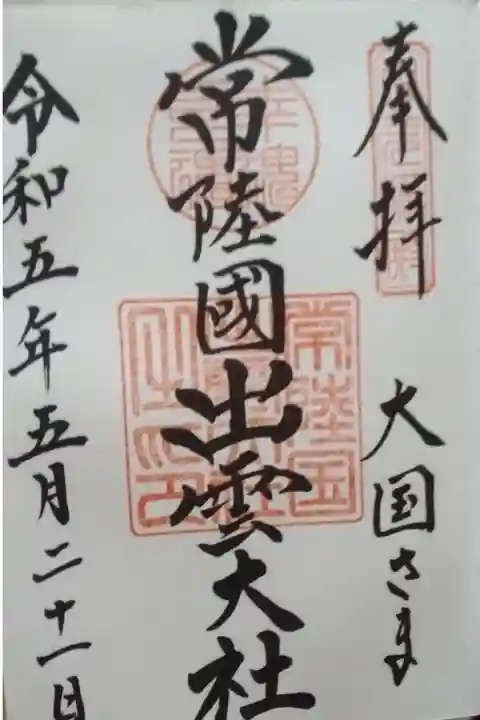 奉拝
大国さま
常陸國出雲大社
常陸国
令和五年五月二十一日